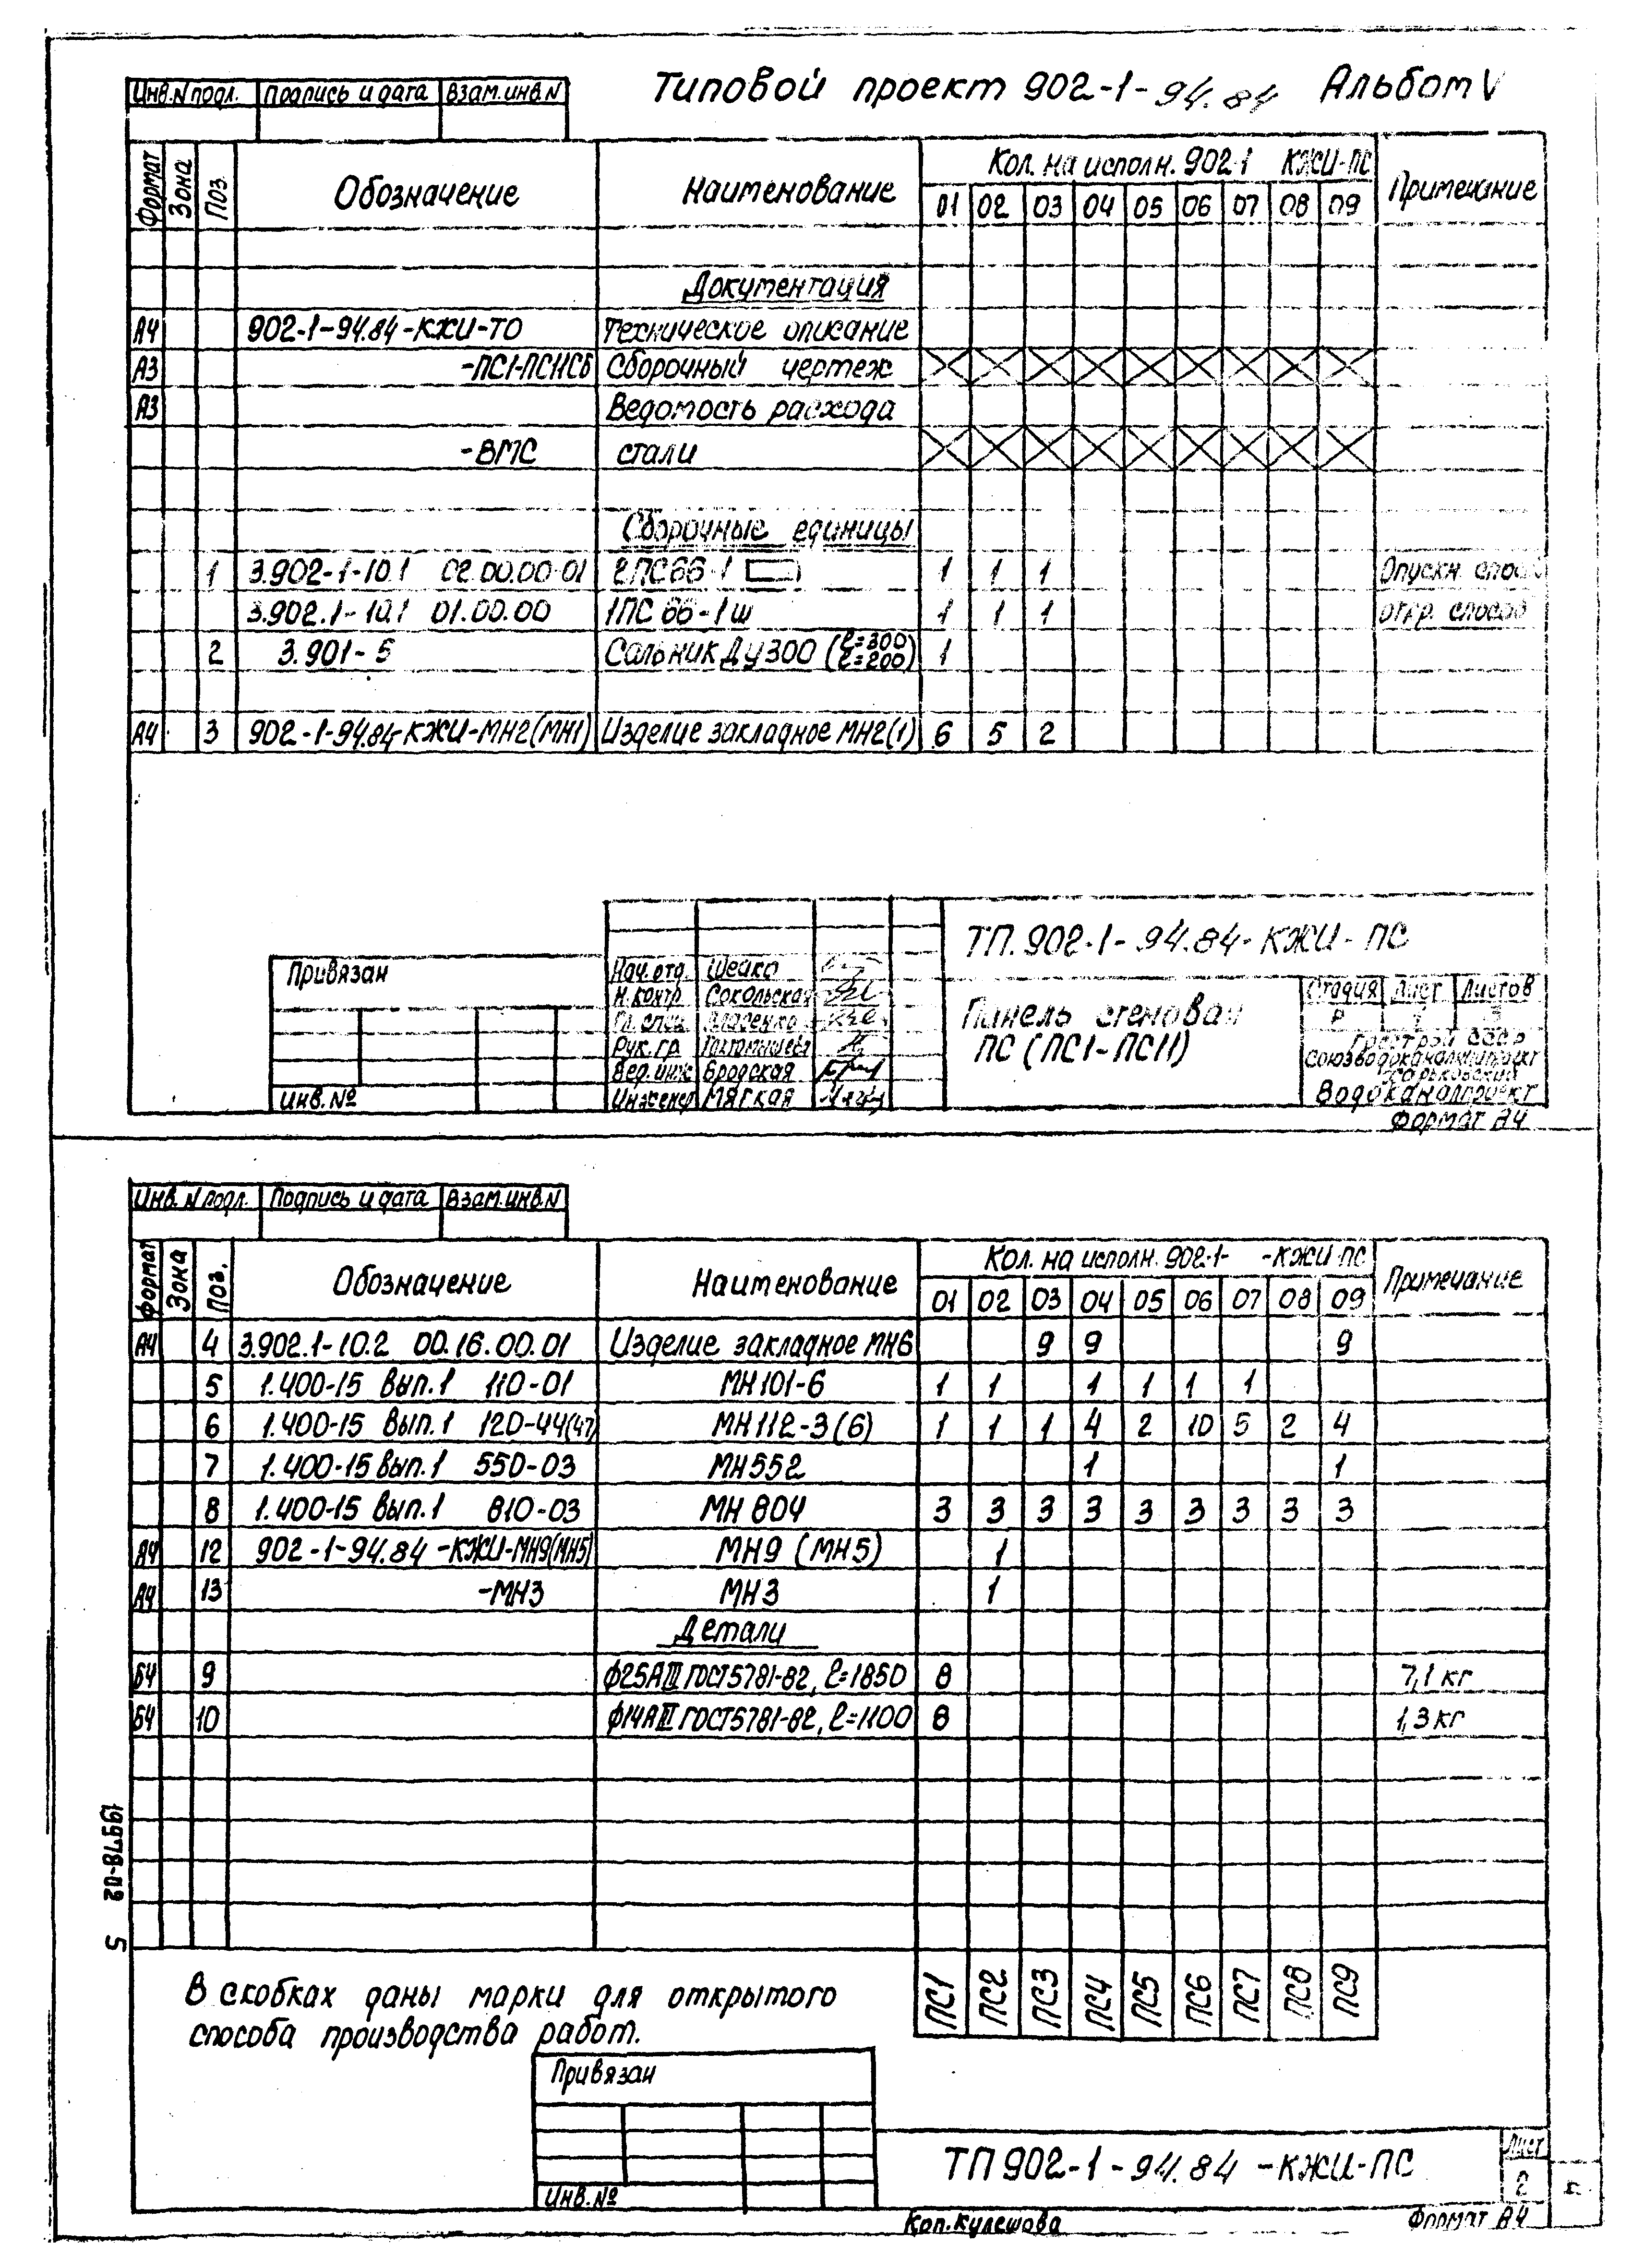 Типовой проект 902-1-94.84 Альбом V
Инв.N подл. Подпись и дата Взам.инв.N
Формат Зона Поз. Обозначение Наименование Кол. на исполн. 902-1 КЖИ-ПС Примечание
01 02 03 04 05 06 07 08 09
Документация
А4 902-1-94.84-КЖИ-ТО Техническое описание
А3 -ПС1-ПС11СБ Сборочный чертеж
А3 Ведомость расхода
-ВМС стали
Сборочные единицы
1 3.902-1-10.1 02.00.00-01 2ПС66-1 1 1 1 Опускн. способ
3.902.1-10.1 01.00.00 1ПС 66-1ш 1 1 1 откр. способ
2 3.901-5 Сальник Ду300 (ℓ=300 ℓ=200) 1
А4 3 902-1-94.84-КЖИ-МН2(МН1) Изделие закладное МН2(1) 6 5 2
ТП.902-1-94.84-КЖИ-ПС
Привязан
Нач.отд. Шейко
Н.контр. Сокольская
Гл. спец. Власенко
Рук.гр.
Вед.инж. Бродская
Инженер Мягкая
Инв.№
Панель стеновая
ПС (ПС1-ПС11)
Стадия Лист Листов
Р 1 3
Госстрой СССР
Союзводоканалпроект
Харьковский
Водоканалпроект
Формат А4
Инв. N подл. Подпись и дата Взам.инв.N
Формат Зона Поз. Обозначение Наименование Кол. на исполн. 902-1- -КЖИ-ПС Примечание
01 02 03 04 05 06 07 08 09
А4 4 3.902.1-10.2 00.16.00.01 Изделие закладное МН6 9 9 9
5 1.400-15 Вып.1 110-01 МН101-6 1 1 1 1 1 1
6 1.400-15 Вып.1 120-44(47) МН112-3(6) 1 1 1 4 2 10 5 2 4
7 1.400-15 Вып.1 550-03 МН552 1 1
8 1.400-15 Вып.1 810-03 МН 804 3 3 3 3 3 3 3 3 3
А4 12 902-1-94.84-КЖИ-МН9(МН5) МН9 (МН5) 1
А4 13 -МН3 МН3 1
Детали
Б4 9 ф25АIII ГОСТ5781-82, ℓ=1850 8 7,1 кг
Б4 10 ф14АIII ГОСТ5781-82, ℓ=1100 8 1,3 кг
19978-02 5
ПС1 ПС2 ПС3 ПС4 ПС5 ПС6 ПС7 ПС8 ПС9
В скобках даны марки для открытого
способа производства работ.
Привязан
Инв.№
ТП 902-1-94.84-КЖИ-ПС
Лист
2
Коп.Кулешова
Формат А4